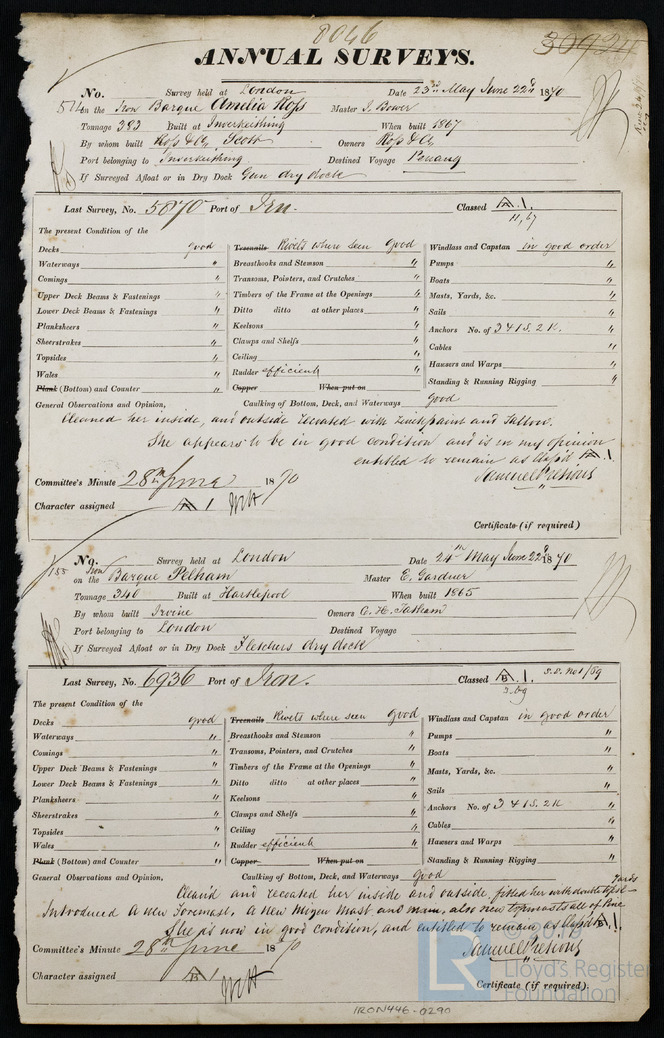 8046
30924
ANNUAL SURVEYS.
No. Survey held at London Date 23rd May June 22d 1870
514 on the Iron Barque Amelia Ross Master J. Bower
Tonnage 393 Built at Inverkeithing When built 1867
By whom built Ross & Co, Scott Owners Ross & Co
Port belonging to Inverkeithing Destined Voyage Penang
If Surveyed Afloat or in Dry Dock Gun dry dock
Last Survey, No. 5870 Port of Iron. Classed A.1.
11,67
The present Condition of the
Decks good Treenails Rivets where seen Good Windlass and Capstan in good order
Waterways " Breasthooks and Stemson " Pumps "
Comings " Transoms, Pointers, and Crutches " Boats "
Upper Deck Beams & Fastenings " Timbers of the Frame at the Openings " Masts, Yards, &c. "
Lower Deck Beams & Fastenings " Ditto ditto at other places " Sails "
Planksheers " Keelsons " Anchors No. of 3 4 1 S. 2 K. "
Sheerstrakes " Clamps and Shelfs " Cables "
Topsides " Ceiling " Hausers and Warps "
Wales " Rudder efficient " Standing & Running Rigging "
Plank (Bottom) and Counter " Copper When put on
General Observations and Opinion, Caulking of Bottom, Deck, and Waterways Good
Cleaned her inside, and outside recoated with zinc paint and tallow.
She appears to be in good condition and is in my opinion
entitled to remain as Class'd A.1.
Committee's Minute 28th June 1870 Samuel Pretious
Character assigned A 1
Certificate (if required)
No. Survey held at London Date 24th May June 22d 1870
155 on the Iron Barque Pelham Master E. Gardner
Tonnage 340 Built at Hartlepool When built 1865
By whom built Irvine Owners C. H. Tatham
Port belonging to London Destined Voyage
If Surveyed Afloat or in Dry Dock Fletchers dry dock
Last Survey, No. 6936 Port of Iron. Classed B.1. S.S. No1/59
3.69
The present Condition of the
Decks good Treenails Rivets where seen Good Windlass and Capstan in good order
Waterways " Breasthooks and Stemson " Pumps "
Comings " Transoms, Pointers, and Crutches " Boats "
Upper Deck Beams & Fastenings " Timbers of the Frame at the Openings " Masts, Yards, &c. "
Lower Deck Beams & Fastenings " Ditto ditto at other places " Sails "
Planksheers " Keelsons " Anchors No. of 3 4 1 S. 2 K "
Sheerstrakes " Clamps and Shelfs " Cables "
Topsides " Ceiling " Hausers and Warps "
Wales " Rudder efficient " Standing & Running Rigging "
Plank (Bottom) and Counter " Copper When put on
General Observations and Opinion, Caulking of Bottom, Deck, and Waterways Good
Clean'd and recoated her inside and outside, fitted her with double topsl yards
Introduced A new Foremast, A new Mizen Mast and main, also new topmasts all of Pine
She is now in good condition, and entitled to remain as Class'd B.1.
Committee's Minute 28th June 1870 Samuel Pretious
Character assigned B 1
Certificate (if required).
LR
Lloyd's Register
Foundation
IRON446-0290